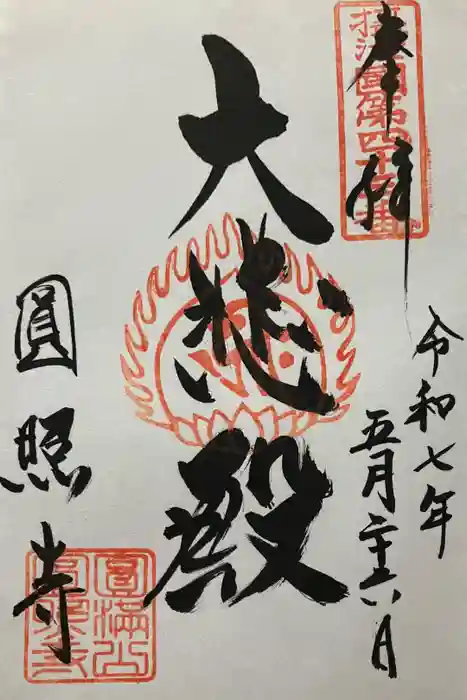 奉拝
摂津國第四十七番
令和七年
五月二十六日
大悲殿
圓照寺
圓満山